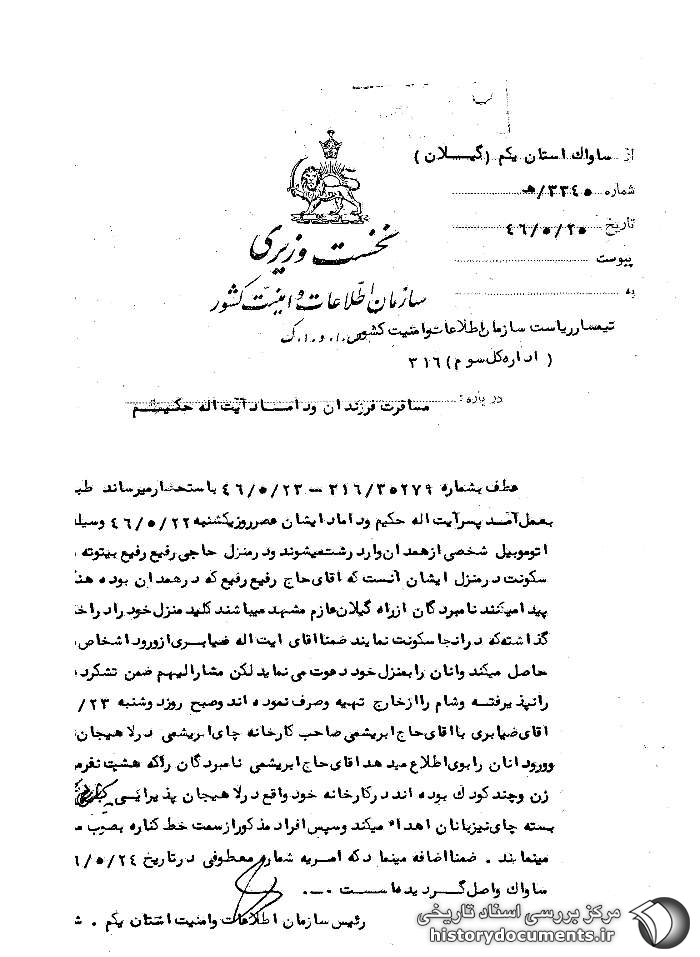 از ساواك استان یكم (گیلان)
شماره ۳۳۴۵/هـ
تاریخ ۴۶/۵/۲۵
پیوست
به
نخست وزیری
سازمان اطلاعات و امنیت کشور
تیمسار ریاست سازمان اطلاعات و امنیت کشور
(اداره کل سوم) ۳۱۶
درباره: مسافرت فرزندان و داماد آیت اله حکیم
عطف بشماره ۳۱۶/۳۵۲۷۹ – ۴۶/۵/۲۳ باستحضار میرساند طب
بعمل آمد پسر آیت اله حکیم و داماد ایشان عصر روز یکشنبه ۴۶/۵/۲۲ وسیله
اتوموبیل شخصی از همدان وارد رشت میشوند و در منزل حاجی رفیع رفیع بیتوته
سکونت در منزل ایشان آنست که آقای حاج رفیع رفیع که در همدان بوده هنگ
پیدا میکنند نامبردگان از راه گیلان عازم مشهد میباشند کلید منزل خود را در اخت
گذاشته که در انجا سکونت نمایند ضمنا اقای ایت اله ضیابری از ورود اشخاص
حاصل میکند وانان را بمنزل خود دعوت می نماید لکن مشارالیهم ضمن تشکر د
را نپذیرفته و شام را از خارج تهیه و صرف نموده اند و صبح روز دوشنبه ۲۳/
اقای ضیابری با اقای حاج ابریشمی صاحب کارخانه چای ابریشمی در لاهیجان
وورود انان را بوی اطلاع میدهد اقای حاج ابریشمی نامبردگان را که هشت نفر م
زن و چند کودك بوده اند در کارخانه خود واقع در لاهیجان پذیرائی
بسته چای نیز بانان اهداء میکند و سپس افراد مذکور از سمت خط کناره بصوب م
مینمایند . ضمنا اضافه مینماید که امریه شماره معطوفی در تاریخ ۴۶/۵/۲۴
ساواك واصل گردیده است .
رئیس سازمان اطلاعات و امنیت استان یکم . ش
مرکز بررسی اسناد تاریخی
historydocuments.ir